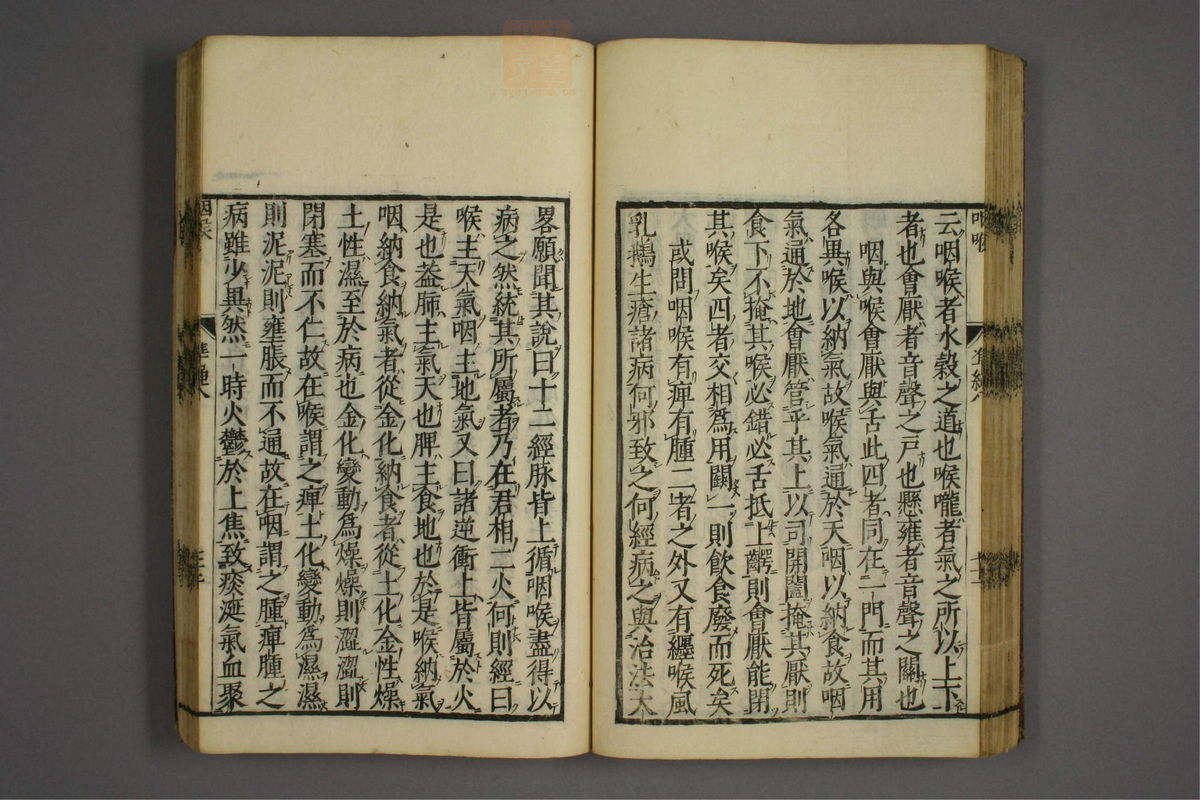 云咽喉者水穀之道也喉嚨者氣之所以上下
者也會厭者音聲之戸也懸雍者音聲之關也
咽與喉會厭與舌此四者同在一門而其用
各異喉以納氣故喉氣通於天咽以納食故咽
氣通於地會厭管乎其上以司開闔掩其厭則
食下不掩其喉必錯必舌抵上齶則會厭能閉
其喉矣四者交相爲用闕一則飲食廢而死矣
或問咽喉有痺有腫二者之外又有纒喉風
乳鵝生瘡諸病何邪致之何經病之與治法大
畧願聞其說曰十二經脉皆上循咽喉盡得以
病之然統其所屬者乃在君相二火何則經曰
喉主天氣咽主地氣又曰諸逆衝上皆屬於火
是也葢肺主氣天也脾主食地也於是喉納氣
咽納食納氣者從金化納食者從土化金性燥
土性濕至於病也金化變動爲燥燥則澀澀則
閉塞而不仁故在喉謂之痺土化變動爲濕濕
則泥泥則壅脹而不通故在咽謂之腫痺腫之
病雖少異然一時火鬱於上焦致痰涎氣血聚